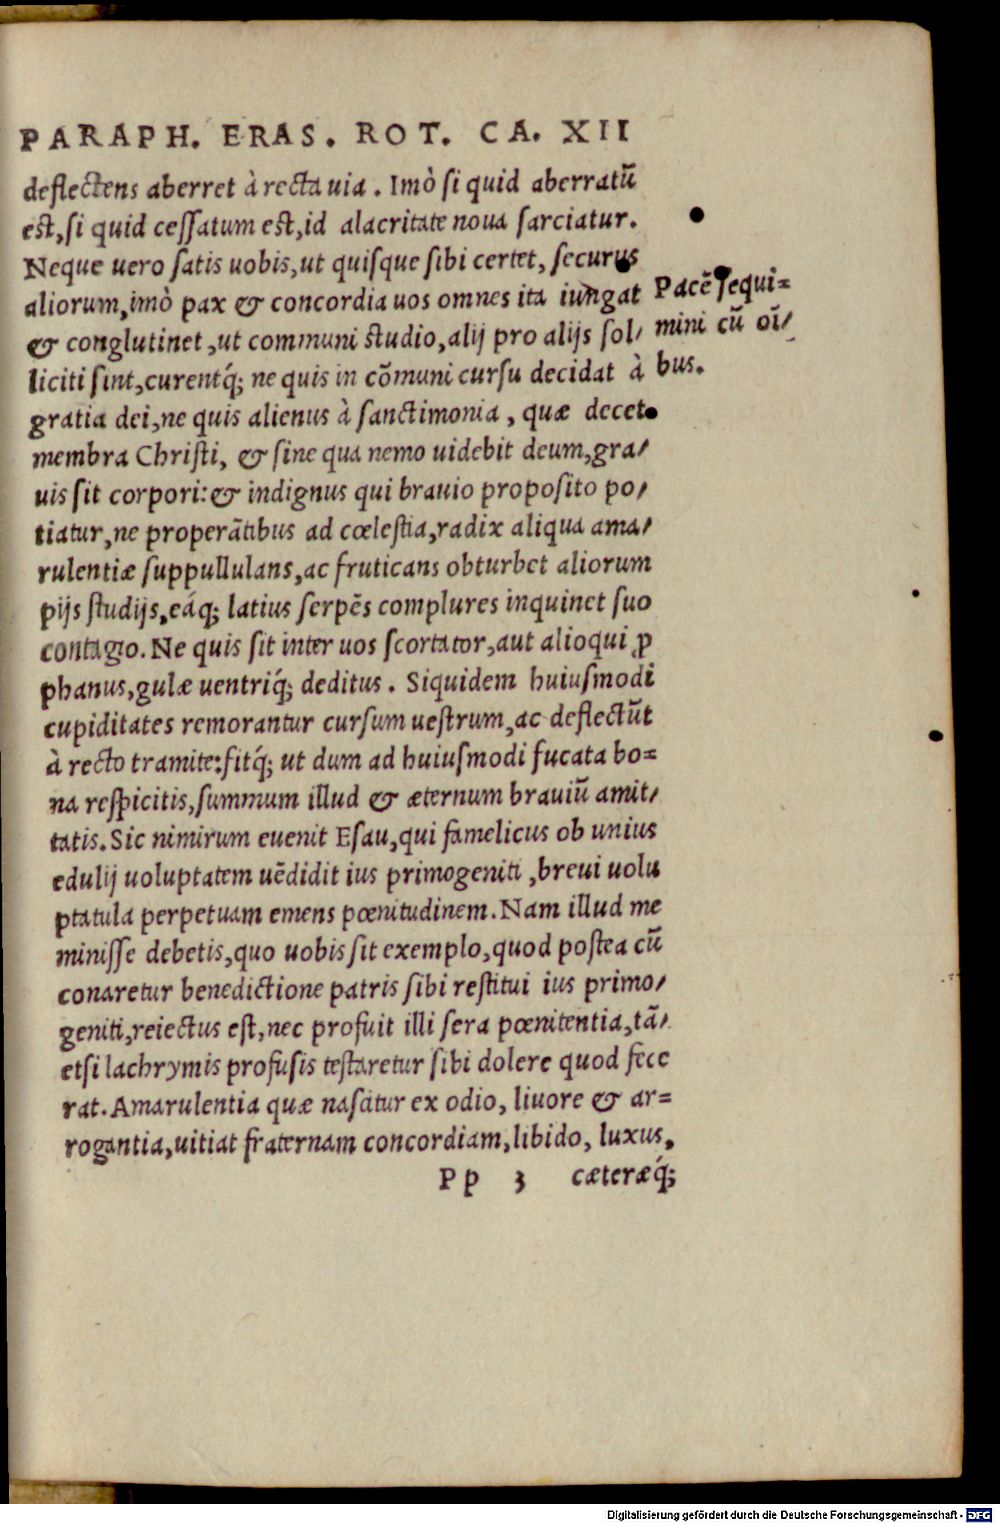 PARAPH. ERAS. ROT. CA. XII
deflectens aberret à recta uia. Imò si quid aberratũ
est, si quid cessatum est, id alacritate noua sarciatur.
Neque uero satis uobis, ut quisque sibi certet, securus
aliorum, imò pax & concordia uos omnes ita iungat
& conglutinet, ut communi studio, alij pro alijs sol/
liciti sint, curentq́; ne quis in cõmuni cursu decidat à
gratia dei, ne quis alienus à sanctimonia, quæ decet
membra Christi, & sine qua nemo uidebit deum, gra/
uis sit corpori: & indignus qui brauio proposito po/
tiatur, ne properãtibus ad cœlestia, radix aliqua ama/
rulentiæ suppullulans, ac fruticans obturbet aliorum
pijs studijs, eáq; latius serpẽs complures inquinet suo
contagio. Ne quis sit inter uos scortator, aut alioqui ꝓ
phanus, gulæ uentriq́; deditus. Siquidem huiusmodi
cupiditates remorantur cursum uestrum, ac deflectũt
à recto tramite: fitq́; ut dum ad huiusmodi fucata bo=
na respicitis, summum illud & æternum brauiũ amit/
tatis. Sic nimirum euenit Esau, qui famelicus ob unius
edulij uoluptatem uẽdidit ius primogeniti, breui uolu
ptatula perpetuam emens pœnitudinem. Nam illud me
minisse debetis, quo uobis sit exemplo, quod postea cũ
conaretur benedictione patris sibi restitui ius primo/
geniti, reiectus est, nec profuit illi sera pœnitentia, tã/
etsi lachrymis profusis testaretur sibi dolere quod fece
rat. Amarulentia quæ nascitur ex odio, liuore & ar=
rogantia, uitiat fraternam concordiam, libido, luxus,
Pp 3 cæteræq́;
Pacẽ sequi=
mini cũ oĩ/
bus.
Digitalisierung gefördert durch die Deutsche Forschungsgemeinschaft - DFG